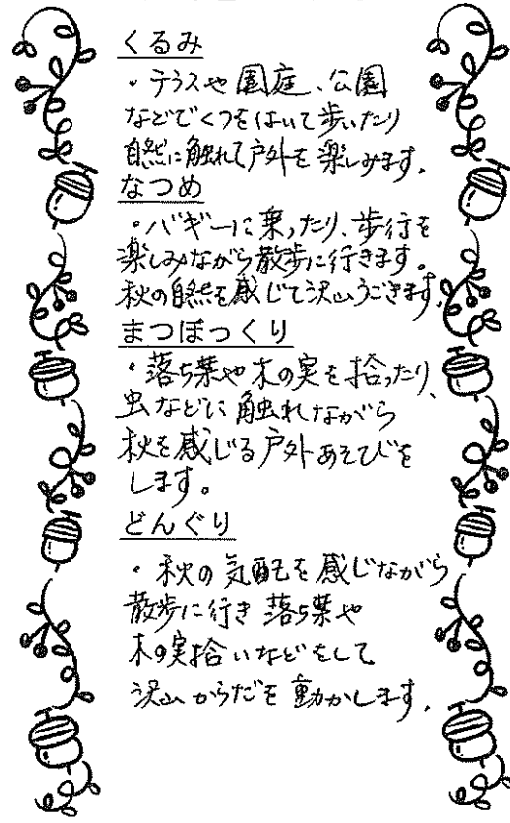 くるみ
・テラスや園庭、公園
などでくつをはいて歩いたり
自然に触れて戸外を楽しみます。
なつめ
・バギーに乗ったり、歩行を
楽しみながら散歩に行きます。
秋の自然を感じて沢山うごきます。
まつぼっくり
・落ち葉や木の実を拾ったり、
虫などに触れながら
秋を感じる戸外あそびを
します。
どんぐり
・秋の気配を感じながら
散歩に行き落ち葉や
木の実拾いなどをして
沢山からだを動かします。